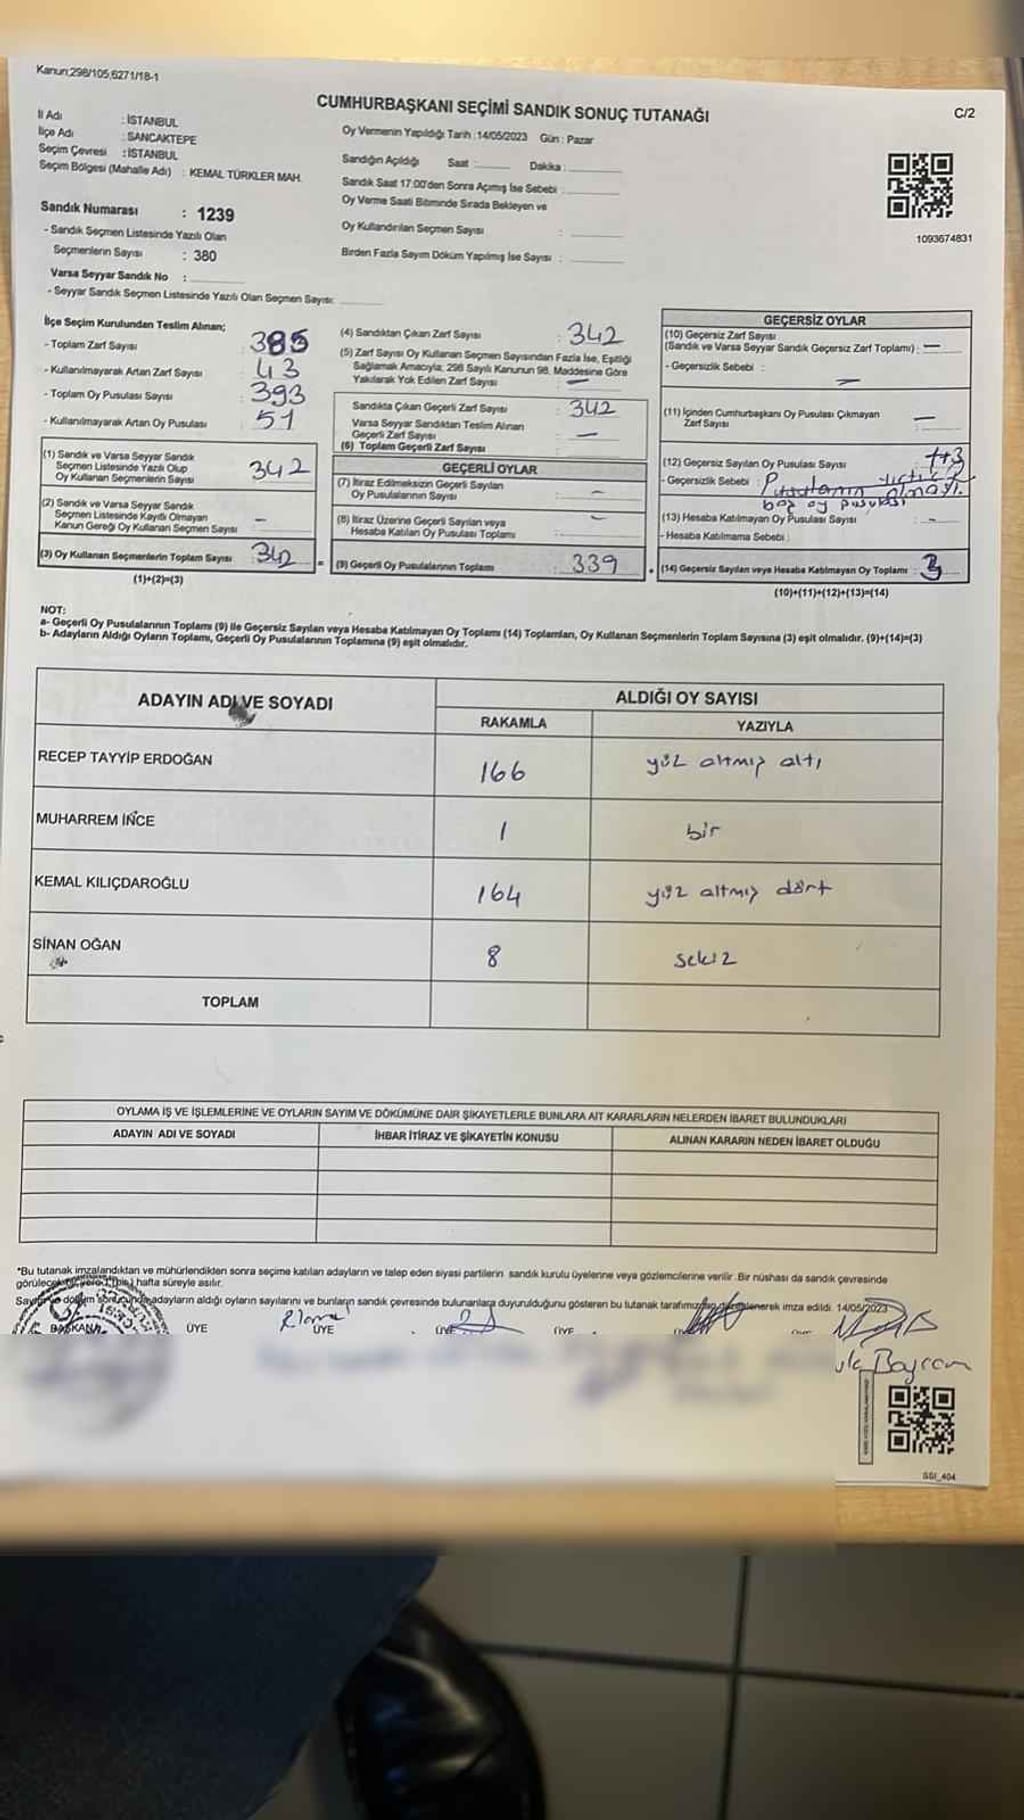 Kanun;298/105,6271/18-1
CUMHURBAŞKANI SEÇİMİ SANDIK SONUÇ TUTANAĞI
C/2
İl Adı : İSTANBUL
İlçe Adı : SANCAKTEPE
Seçim Çevresi : İSTANBUL
Seçim Bölgesi (Mahalle Adı) : KEMAL TÜRKLER MAH.
Sandık Numarası : 1239
- Sandık Seçmen Listesinde Yazılı Olan
Seçmenlerin Sayısı : 380
Varsa Seyyar Sandık No :
- Seyyar Sandık Seçmen Listesinde Yazılı Olan Seçmen Sayısı:
Oy Vermenin Yapıldığı Tarih :14/05/2023 Gün : Pazar
Sandığın Açıldığı Saat : Dakika :
Sandık Saat 17:00'den Sonra Açımış İse Sebebi :
Oy Verme Saati Bitiminde Sırada Bekleyen ve
Oy Kullandırılan Seçmen Sayısı :
Birden Fazla Sayım Döküm Yapılmış İse Sayısı :
1093674831
İlçe Seçim Kurulundan Teslim Alınan;
- Toplam Zarf Sayısı : 385
- Kullanılmayarak Artan Zarf Sayısı : 43
- Toplam Oy Pusulası Sayısı : 393
- Kullanılmayarak Artan Oy Pusulası : 51
(1) Sandık ve Varsa Seyyar Sandık
Seçmen Listesinde Yazılı Olup
Oy Kullanan Seçmenlerin Sayısı 342
(2) Sandık ve Varsa Seyyar Sandık
Seçmen Listesinde Kayıtlı Olmayan
Kanun Gereği Oy Kullanan Seçmen Sayısı –
(3) Oy Kullanan Seçmenlerin Toplam Sayısı 342
(1)+(2)=(3)
(4) Sandıktan Çıkan Zarf Sayısı : 342
(5) Zarf Sayısı Oy Kullanan Seçmen Sayısından Fazla İse, Eşitliği
Sağlamak Amacıyla; 298 Sayılı Kanunun 98. Maddesine Göre
Yakılarak Yok Edilen Zarf Sayısı : –
Sandıkta Çıkan Geçerli Zarf Sayısı : 342
Varsa Seyyar Sandıktan Teslim Alınan
Geçerli Zarf Sayısı : –
(6) Toplam Geçerli Zarf Sayısı :
GEÇERLİ OYLAR
(7) İtiraz Edilmeksizin Geçerli Sayılan
Oy Pusulalarının Sayısı : –
(8) İtiraz Üzerine Geçerli Sayılan veya
Hesaba Katılan Oy Pusulası Toplamı : –
(9) Geçerli Oy Pusulalarının Toplamı : 339
GEÇERSİZ OYLAR
(10) Geçersiz Zarf Sayısı
(Sandık ve Varsa Seyyar Sandık Geçersiz Zarf Toplamı) : –
- Geçersizlik Sebebi : –
(11) İçinden Cumhurbaşkanı Oy Pusulası Çıkmayan
Zarf Sayısı : –
(12) Geçersiz Sayılan Oy Pusulası Sayısı
- Geçersizlik Sebebi : Pusulanın yırtık olması.
boş oy pusulası
(13) Hesaba Katılmayan Oy Pusulası Sayısı : –
- Hesaba Katılmama Sebebi :
(14) Geçersiz Sayılan veya Hesaba Katılmayan Oy Toplamı : 3
(10)+(11)+(12)+(13)=(14)
NOT:
a- Geçerli Oy Pusulalarının Toplamı (9) ile Geçersiz Sayılan veya Hesaba Katılmayan Oy Toplamı (14) Toplamları, Oy Kullanan Seçmenlerin Toplam Sayısına (3) eşit olmalıdır. (9)+(14)=(3)
b- Adayların Aldığı Oyların Toplamı, Geçerli Oy Pusulalarının Toplamına (9) eşit olmalıdır.
ADAYIN ADI VE SOYADI
ALDIĞI OY SAYISI
RAKAMLA YAZIYLA
RECEP TAYYİP ERDOĞAN 166 yüz altmış altı
MUHARREM İNCE 1 bir
KEMAL KILIÇDAROĞLU 164 yüz altmış dört
SİNAN OĞAN 8 sekiz
TOPLAM
OYLAMA İŞ VE İŞLEMLERİNE VE OYLARIN SAYIM VE DÖKÜMÜNE DAİR ŞİKAYETLERLE BUNLARA AİT KARARLARIN NELERDEN İBARET BULUNDUKLARI
ADAYIN ADI VE SOYADI İHBAR İTİRAZ VE ŞİKAYETİN KONUSU ALINAN KARARIN NEDEN İBARET OLDUĞU
*Bu tutanak imzalandıktan ve mühürlendikten sonra seçime katılan adayların ve talep eden siyasi partilerin sandık kurulu üyelerine veya gözlemcilerine verilir. Bir nüshası da sandık çevresinde
hafta süreyle asılır.
adayların aldığı oyların sayılarını ve bunların sandık çevresinde bulunanlara duyurulduğunu gösteren bu tutanak imza edildi. 14/05/2023
BAŞKAN ÜYE ÜYE ÜYE
Bayram
SSI_404